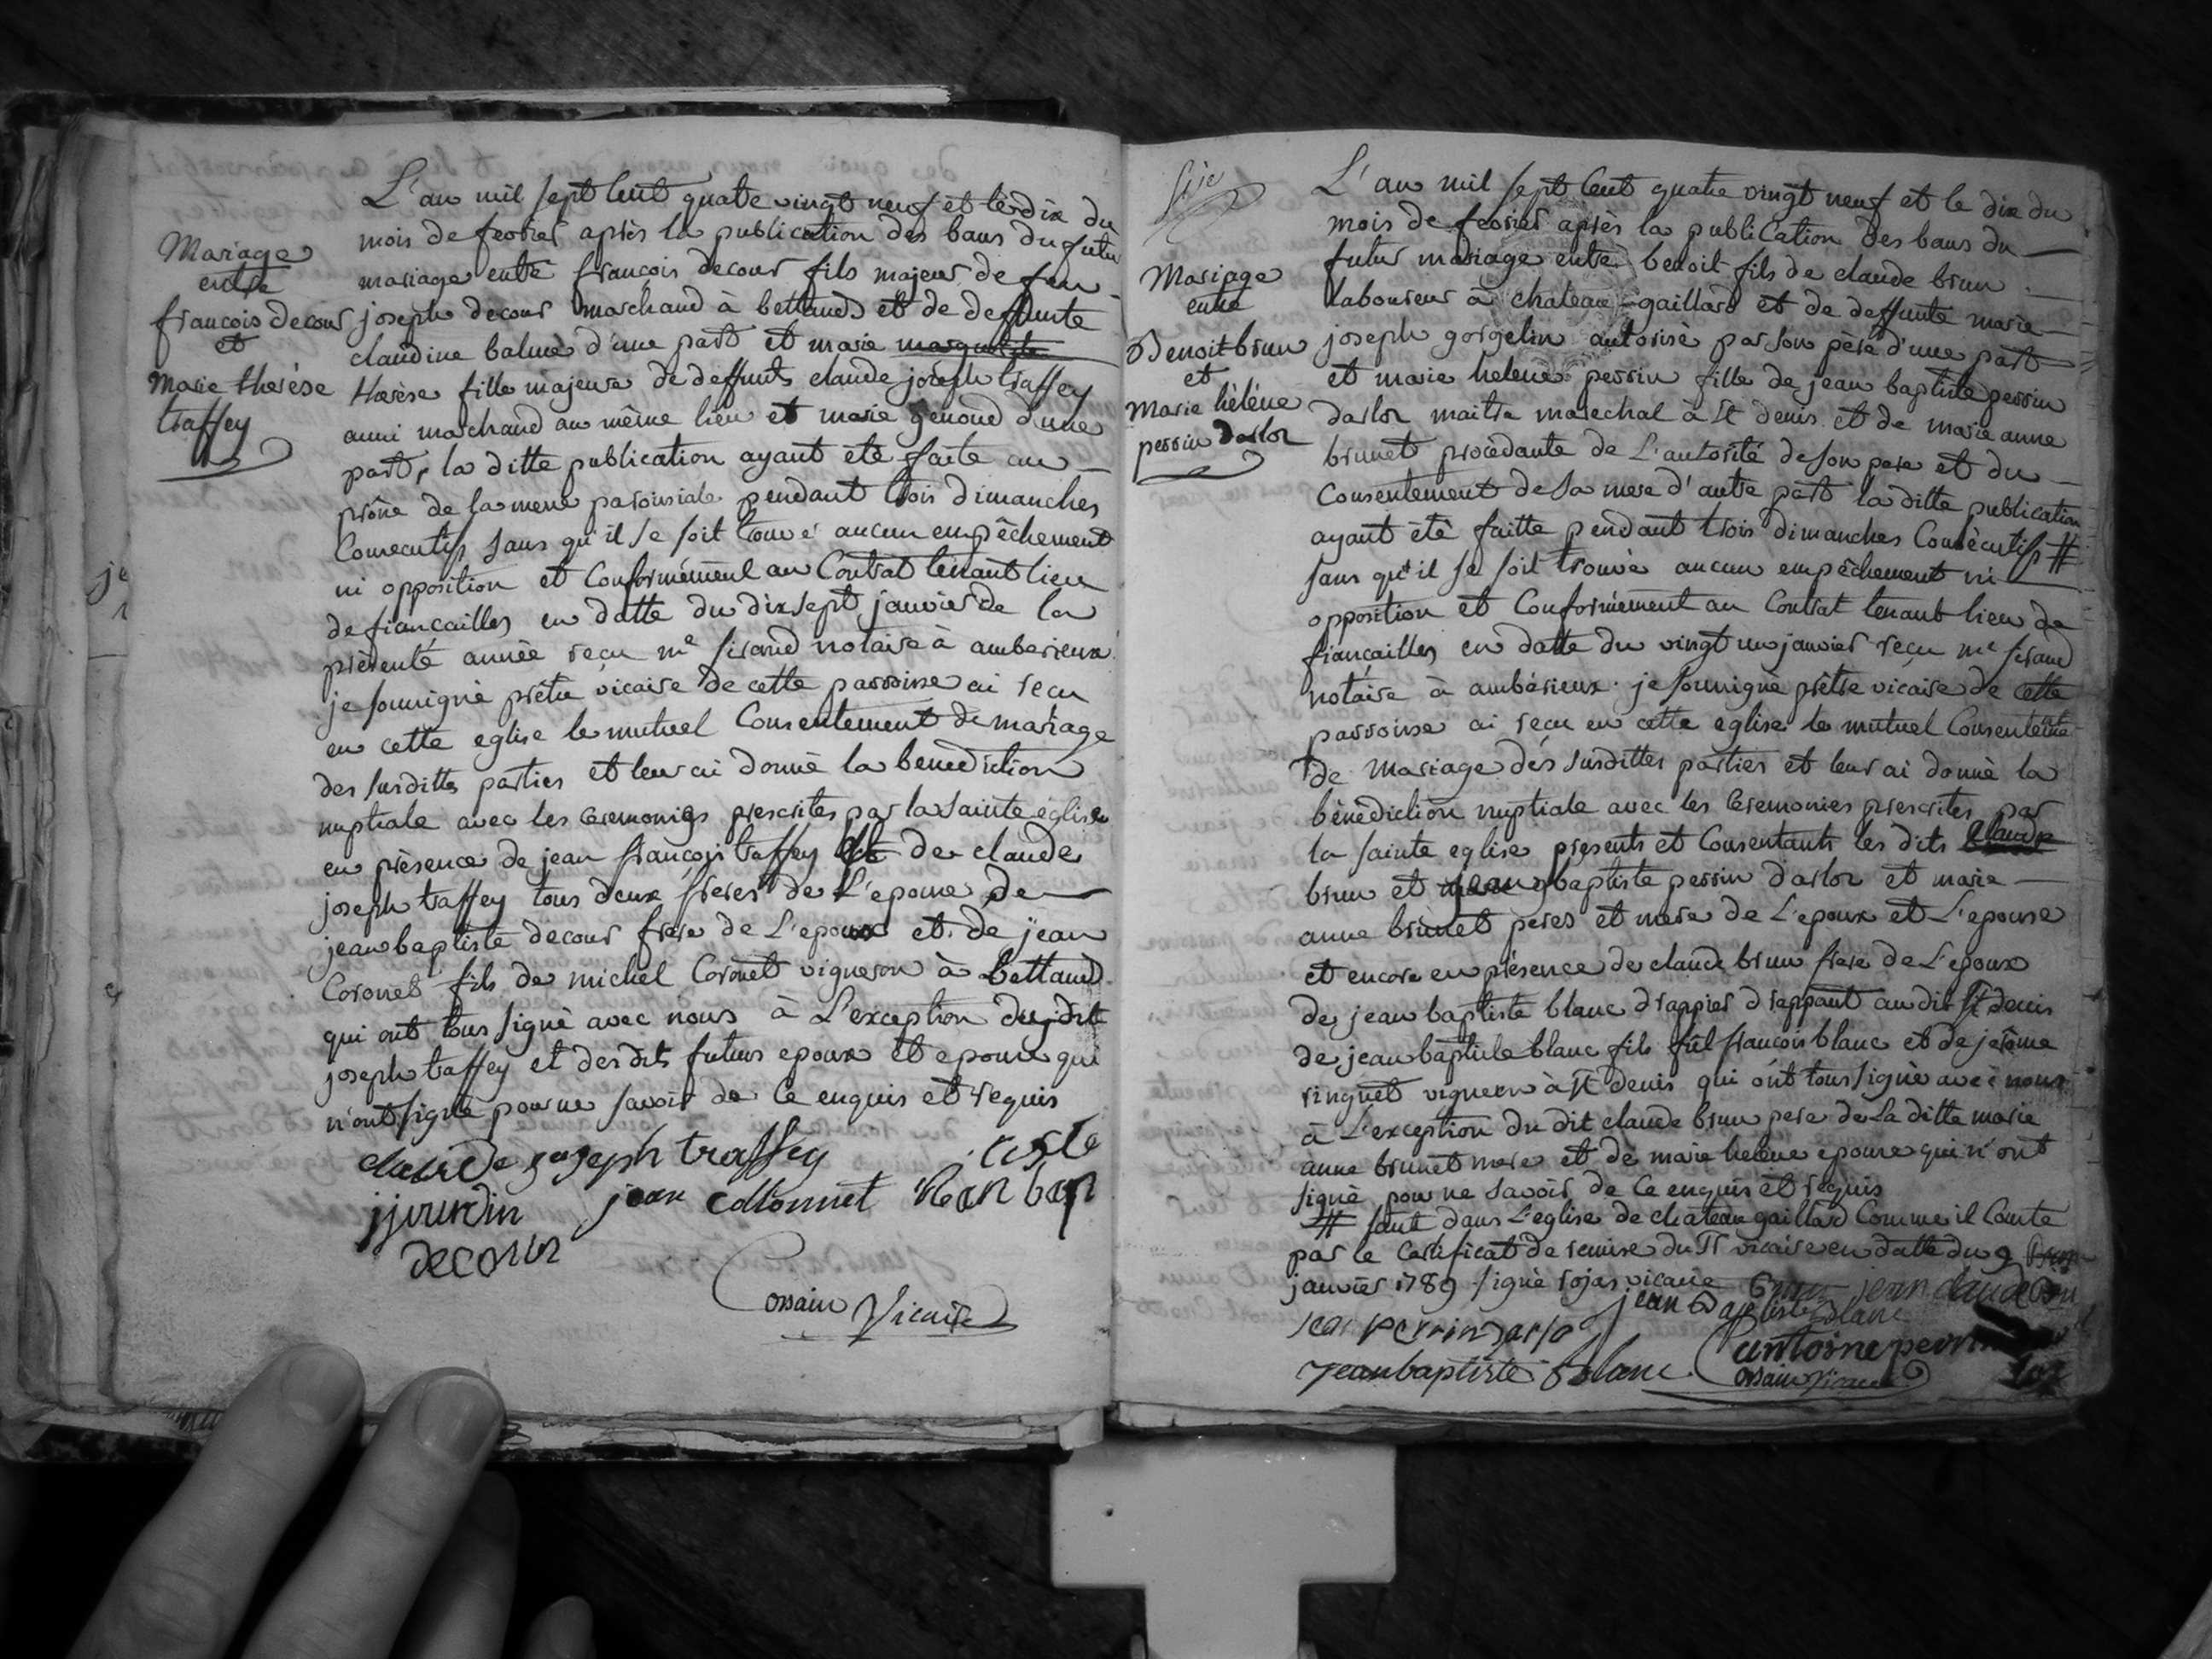 Mariage
entre
francois decour
et
Marie thérèse
traffey
L'an mil sept cent quatre vingt neuf et le dix du
mois de fevrier après la publication des bans du futur
mariage entre françois decour fils majeur de feu
joseph decour marchand à bettand et de deffunte
claudine balme d'une part et marie marguerite
therèse fille majeure de deffunts claude joseph traffey
aussi marchand au même lieu et marie genoud d'une
part, la ditte publication ayant été faite au
prône de la messe paroissiale pendant trois dimanches
Consecutifs sans qu'il se soit trouvé aucun empêchement
ni opposition et Conformément au Contrat tenant lieu
de fiancailles en datte du dix sept janvier de la
présente année reçu me sirand notaire à amberieux
je soussigné prêtre vicaire de cette parroisse ai reçu
en cette eglise le mutuel Consentement de mariage
des susdittes parties et leur ai donné la benediction
nuptiale avec les ceremonies prescrites par la sainte église
en présence de jean françois traffey de claude
joseph traffey tous deux freres de L'epouse de
jean baptiste decour frere de L'epoux et de jean
Coronet fils de michel Coronet vigneron à bettand
qui ont tous signé avec nous à L'exception dudit
joseph traffey et desdits futurs epoux et epouse qui
n'ont signé pour ne savoir de ce enquis et requis
claude joseph traffey
jean collonnet
decour
Cossain Vicaire
Mariage
entre
Benoit brun
et
Marie hélène
perrin darlor
L'an mil sept cent quatre vingt neuf et le dix du
mois de fevrier après la publication des bans du
futur mariage entre benoit fils de claude brun
laboureur à chateau-gaillard et de deffunte marie
joseph gorgelin autorisé par son père d'une part
et marie helene perrin fille de jean baptiste perrin
darlor maitre marechal à st denis et de marie anne
brunet procédante de L'autorité de son pere et du
Consentement de sa mere d'autre part la ditte publication
ayant été faitte pendant trois dimanches Consécutifs #
sans qu'il se soit trouvé aucun empêchement ni
opposition et Conformément au Contrat tenant lieu de
fiançailles en datte du vingt un janvier reçu me sirand
notaire à ambérieux je soussigné prêtre vicaire de cette
parroisse ai reçu en cette eglise le mutuel Consentement
de mariage des susdittes parties et leur ai donné la
bénédiction nuptiale avec les Ceremonies prescrites par
la sainte eglise presents et Consentants les dits claude
brun et jean baptiste perrin darlor et marie
anne brunet peres et mere de L'epoux et L'epouse
et encore en présence de claude brun frere de L'epoux
de jean baptiste blanc drappier drappant au dit St denis
de jean baptiste blanc fils françois blanc et de jerôme
ringuet vigneron à St denis qui ont tous signé avec nous
à L'exception du dit claude brun pere de la ditte marie
anne brunet mere et de marie helene epouse qui n'ont
signé pour ne savoir de ce enquis et requis
# tant dans L'eglise de château gaillard Comme il Conste
par le certificat de remise du Sr vicaire en datte du 9
janvier 1789 signé rojas vicaire brun jean claude brun
jean Baptiste Blanc
antoine perrin
jean baptiste Blanc
Cossain vicaire